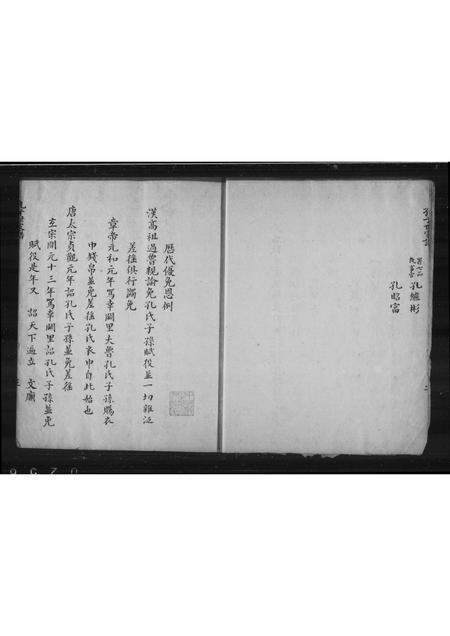 孔繼彬
孔昭富
二
歷代優免恩例
漢高祖過魯親諭免孔氏子孫賦役並一切雜泛
差徭俱行蠲免
章帝元和元年駕幸闕里大魯孔氏子孫賜衣
巾錢帛並免差徭孔氏衣巾自此始也
唐太宗貞觀元年詔孔氏子孫並免差徭
玄宗開元十三年駕幸闕里詔孔氏子孫並免
賦役是年又 詔天下遍立 文廟
三